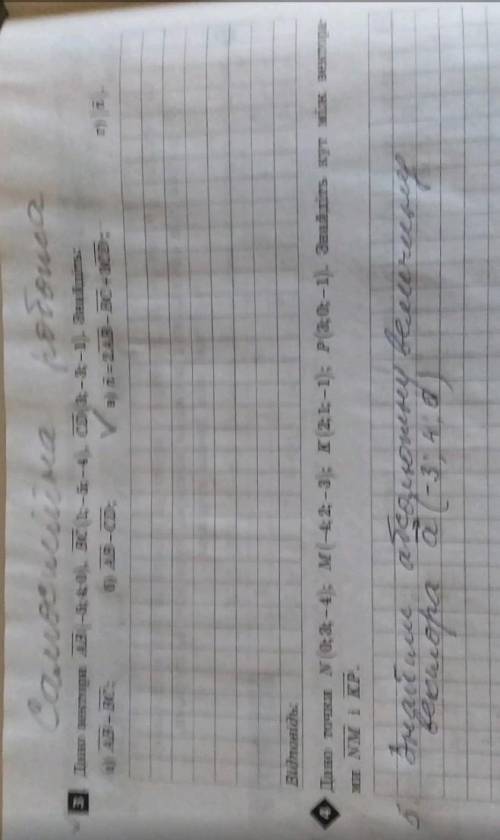 Самостійна робота
3 Дано вектори AB(-3; 4; 0), BC(1; -5; -4), CD(2; -3; -1). Знайдіть:
а) AB - BC; б) AB - CD; в) n = 2AB - BC + 3CD; г) |n|.
Відповідь:
4 Дано точки N(0; 3; -4); M(-4; 2; -3); K(2; 1; -1); P(3; 0; -1). Знайдіть кут між вектора-
ми NM і KP.
5 Знайти абсолютну величину
вектора a (-3; 4, 0)